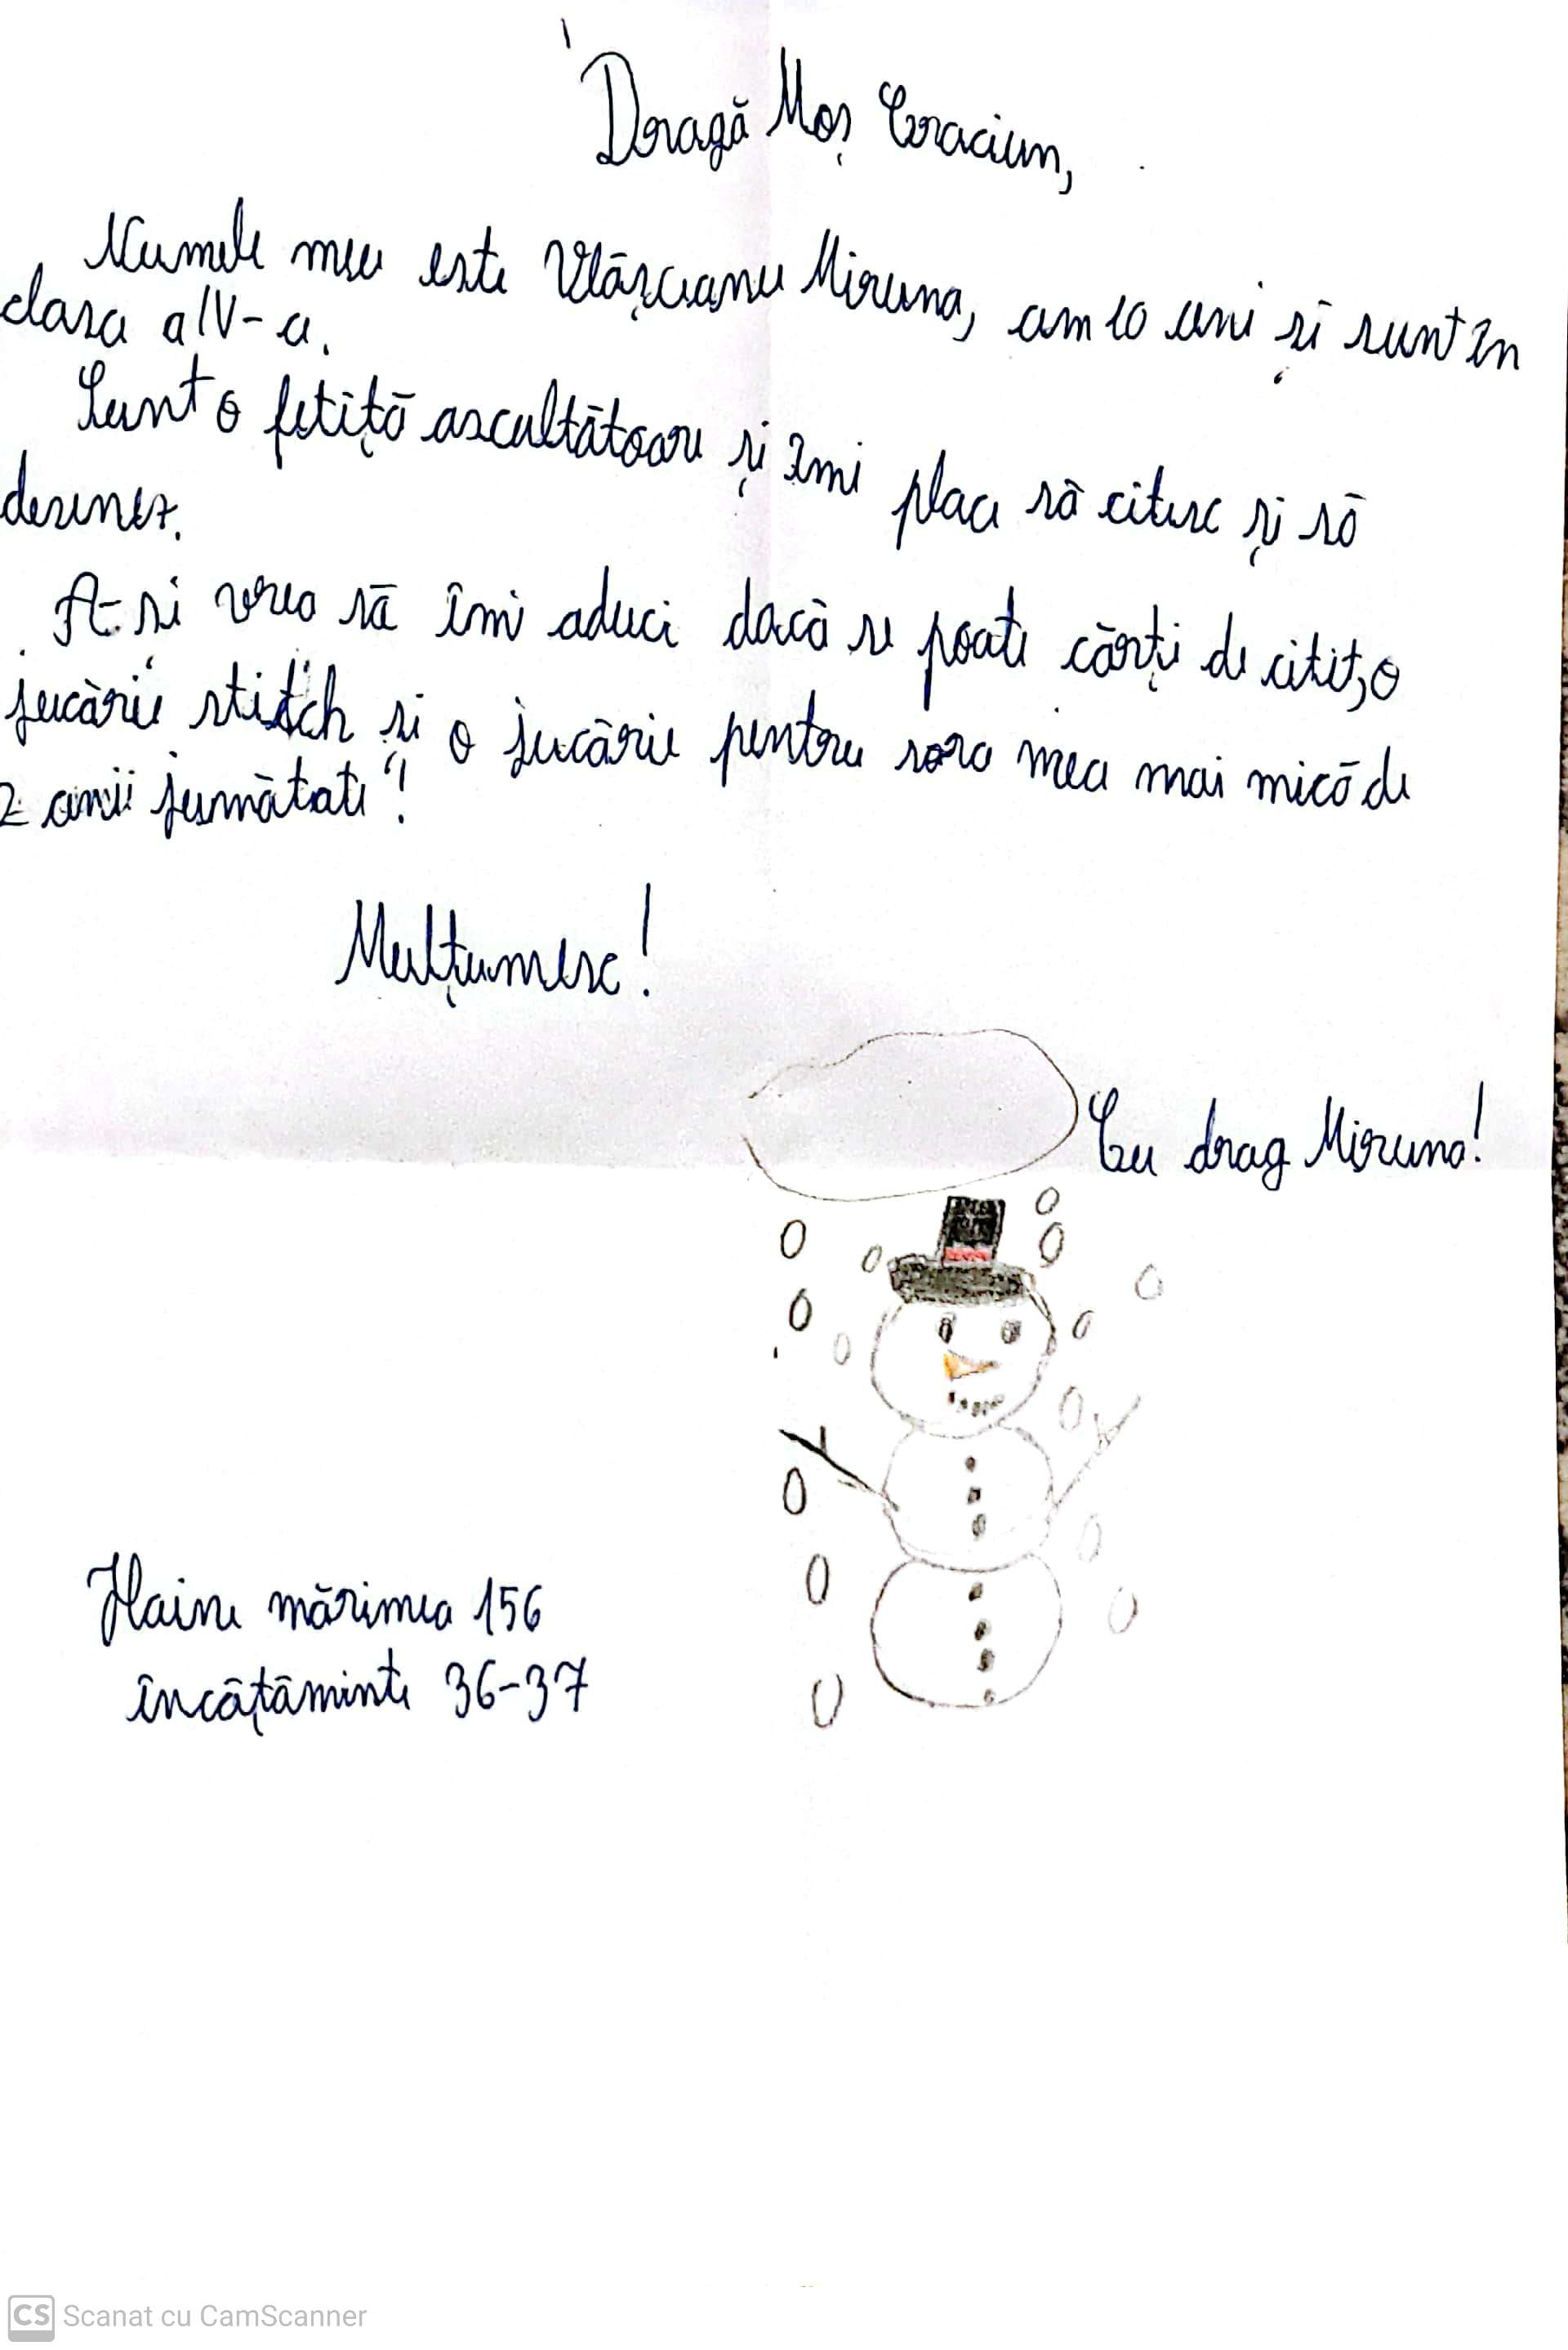 Dragă Moș Craciun,
Numele meu este Vlășceanu Miruna, am 10 ani și sunt în
clasa a IV-a.
Sunt o fetiță ascultătoare și îmi place să citesc și să
desenez.
A-și vrea să îmi aduci dacă se poate cărți de citit, o
jucărie stitch și o jucărie pentru sora mea mai mică de
2 anii jumătate!
Mulțumesc!
Cu drag Miruna!
Haine mărimea 156
încățăminte 36-37
CS Scanat cu CamScanner